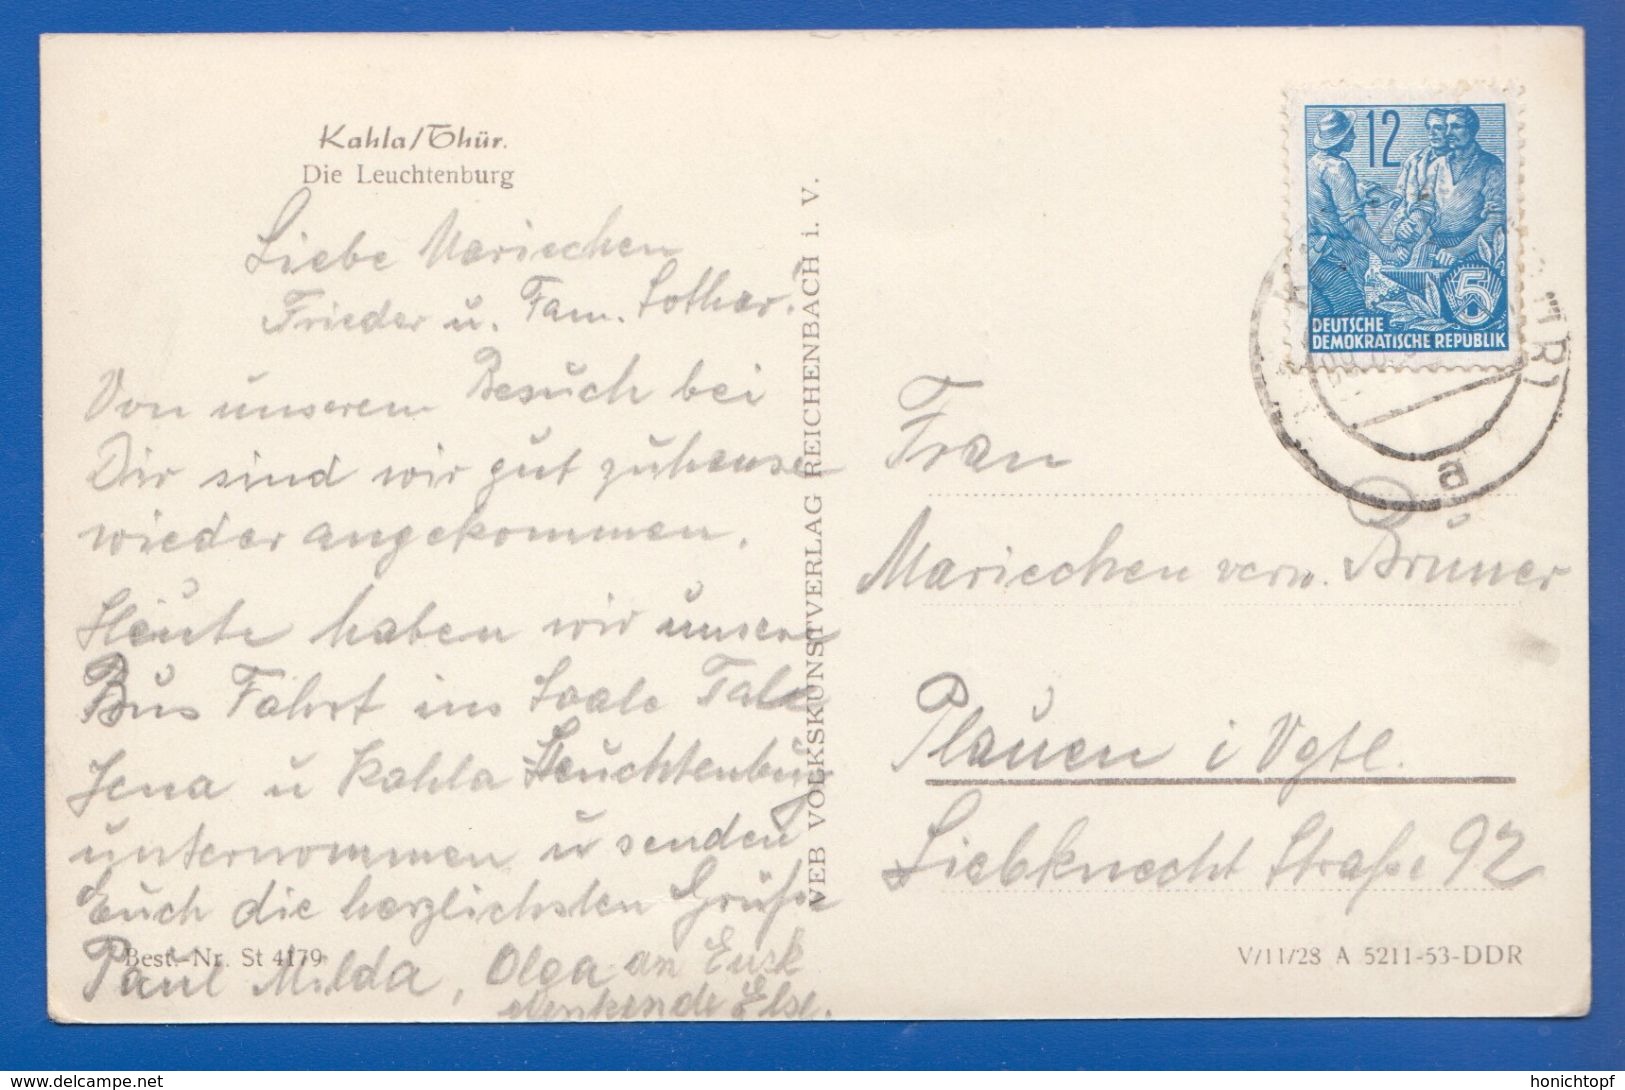 Kahla/Thür.
Die Leuchtenburg
Liebe Mariechen
Frieder u. Fam. Lothar!
Von unserem Besuch bei
Dir sind wir gut zuhause
wieder angekommen.
Heute haben wir unsere
Bus Fahrt ins Saale Tal
Jena u Kahla Leuchtenburg
unternommen u senden
Euch die herzlichsten Grüße
Paul Milda, Olga an Euch
denkende Else.
Best.-Nr. St 4179
VEB VOLKSKUNSTVERLAG REICHENBACH i. V.
12
5
DEUTSCHE
DEMOKRATISCHE REPUBLIK
a
Frau
Mariechen verw. Bruner
Plauen i Vgtl.
Liebknecht Straße 92
V/11/28 A 5211-53-DDR
delcampe.net
honichtopf